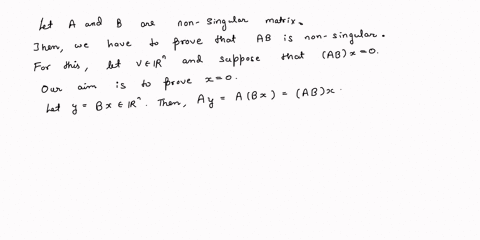 Let A and B are non-singular matrix.
Then, we have to prove that AB is non-singular.
For this, let v ∈ ℝⁿ and suppose that (AB)x = 0.
Our aim is to prove x = 0.
Let y = Bx ∈ ℝⁿ. Then, Ay = A(Bx) = (AB)x.